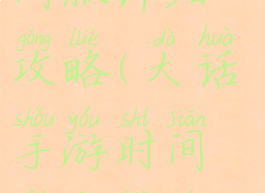 gōng lüè dà huà
攻略(大话
shǒu yóu shí jiān
手游时间